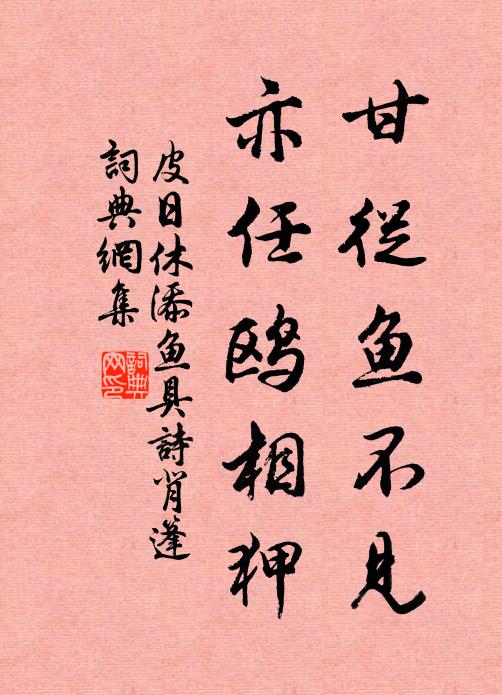 甘從魚不見
亦任鷗相狎
皮日休添魚具詩背篷
詞典網集
詞典网印